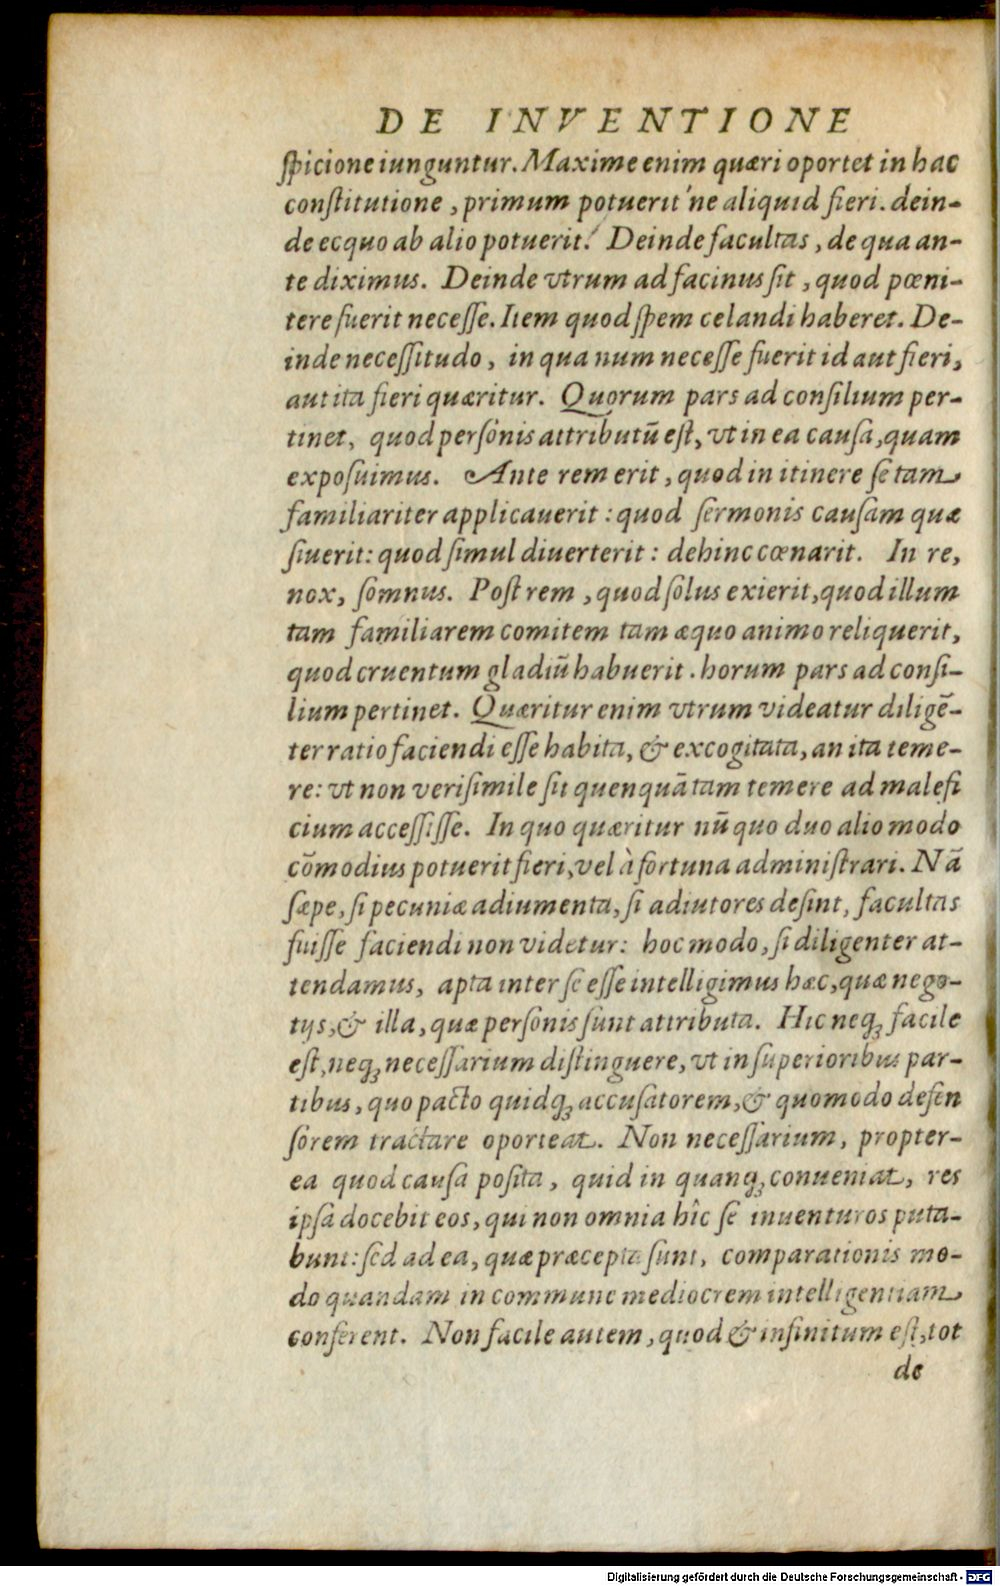 DE INVENTIONE
ſpicione iunguntur. Maxime enim quæri oportet in hac
conſtitutione, primum potuerit'ne aliquid fieri. dein-
de ecquo ab alio potuerit. Deinde facultas, de qua an-
te diximus. Deinde vtrum ad facinus ſit, quod pœni-
tere fuerit neceſſe. Item quod ſpem celandi haberet. De-
inde neceſſitudo, in qua num neceſſe fuerit id aut fieri,
aut ita fieri quæritur. Quorum pars ad conſilium per-
tinet, quod perſonis attributũ eſt, vt in ea cauſa, quam
expoſuimus. Ante rem erit, quod in itinere ſe tam
familiariter applicauerit: quod ſermonis cauſam quæ
ſiuerit: quod ſimul diuerterit: dehinc cœnarit. In re,
nox, ſomnus. Poſt rem, quod ſolus exierit, quod illum
tam familiarem comitem tam æquo animo reliquerit,
quod cruentum gladiũ habuerit. horum pars ad conſi-
lium pertinet. Quæritur enim vtrum videatur diligẽ-
ter ratio faciendi eſſe habita, & excogitata, an ita teme-
re: vt non veriſimile ſit quenquã tam temere ad malefi
cium acceſſiſſe. In quo quæritur nũ quo duo alio modo
cõmodius potuerit fieri, vel à fortuna adminiſtrari. Nã
ſæpe, ſi pecuniæ adiumenta, ſi adiutores deſint, facultas
fuiſſe faciendi non videtur: hoc modo, ſi diligenter at-
tendamus, apta inter ſe eſſe intelligimus hæc, quæ nego-
tijs, & illa, quæ perſonis ſunt attributa. Hic neqꝫ facile
eſt, neqꝫ neceſſarium diſtinguere, vt in ſuperioribus par-
tibus, quo pacto quidqꝫ accuſatorem, & quomodo defen
ſorem tractare oporteat. Non neceſſarium, propter-
ea quod cauſa poſita, quid in quanqꝫ conueniat, res
ipſa docebit eos, qui non omnia hîc ſe inuenturos puta-
bunt: ſed ad ea, quæ præcepta ſunt, comparationis mo-
do quandam in commune mediocrem intelligentiam
conferent. Non facile autem, quod & infinitum eſt, tot
de
Digitalisierung gefördert durch die Deutsche Forschungsgemeinschaft - DFG